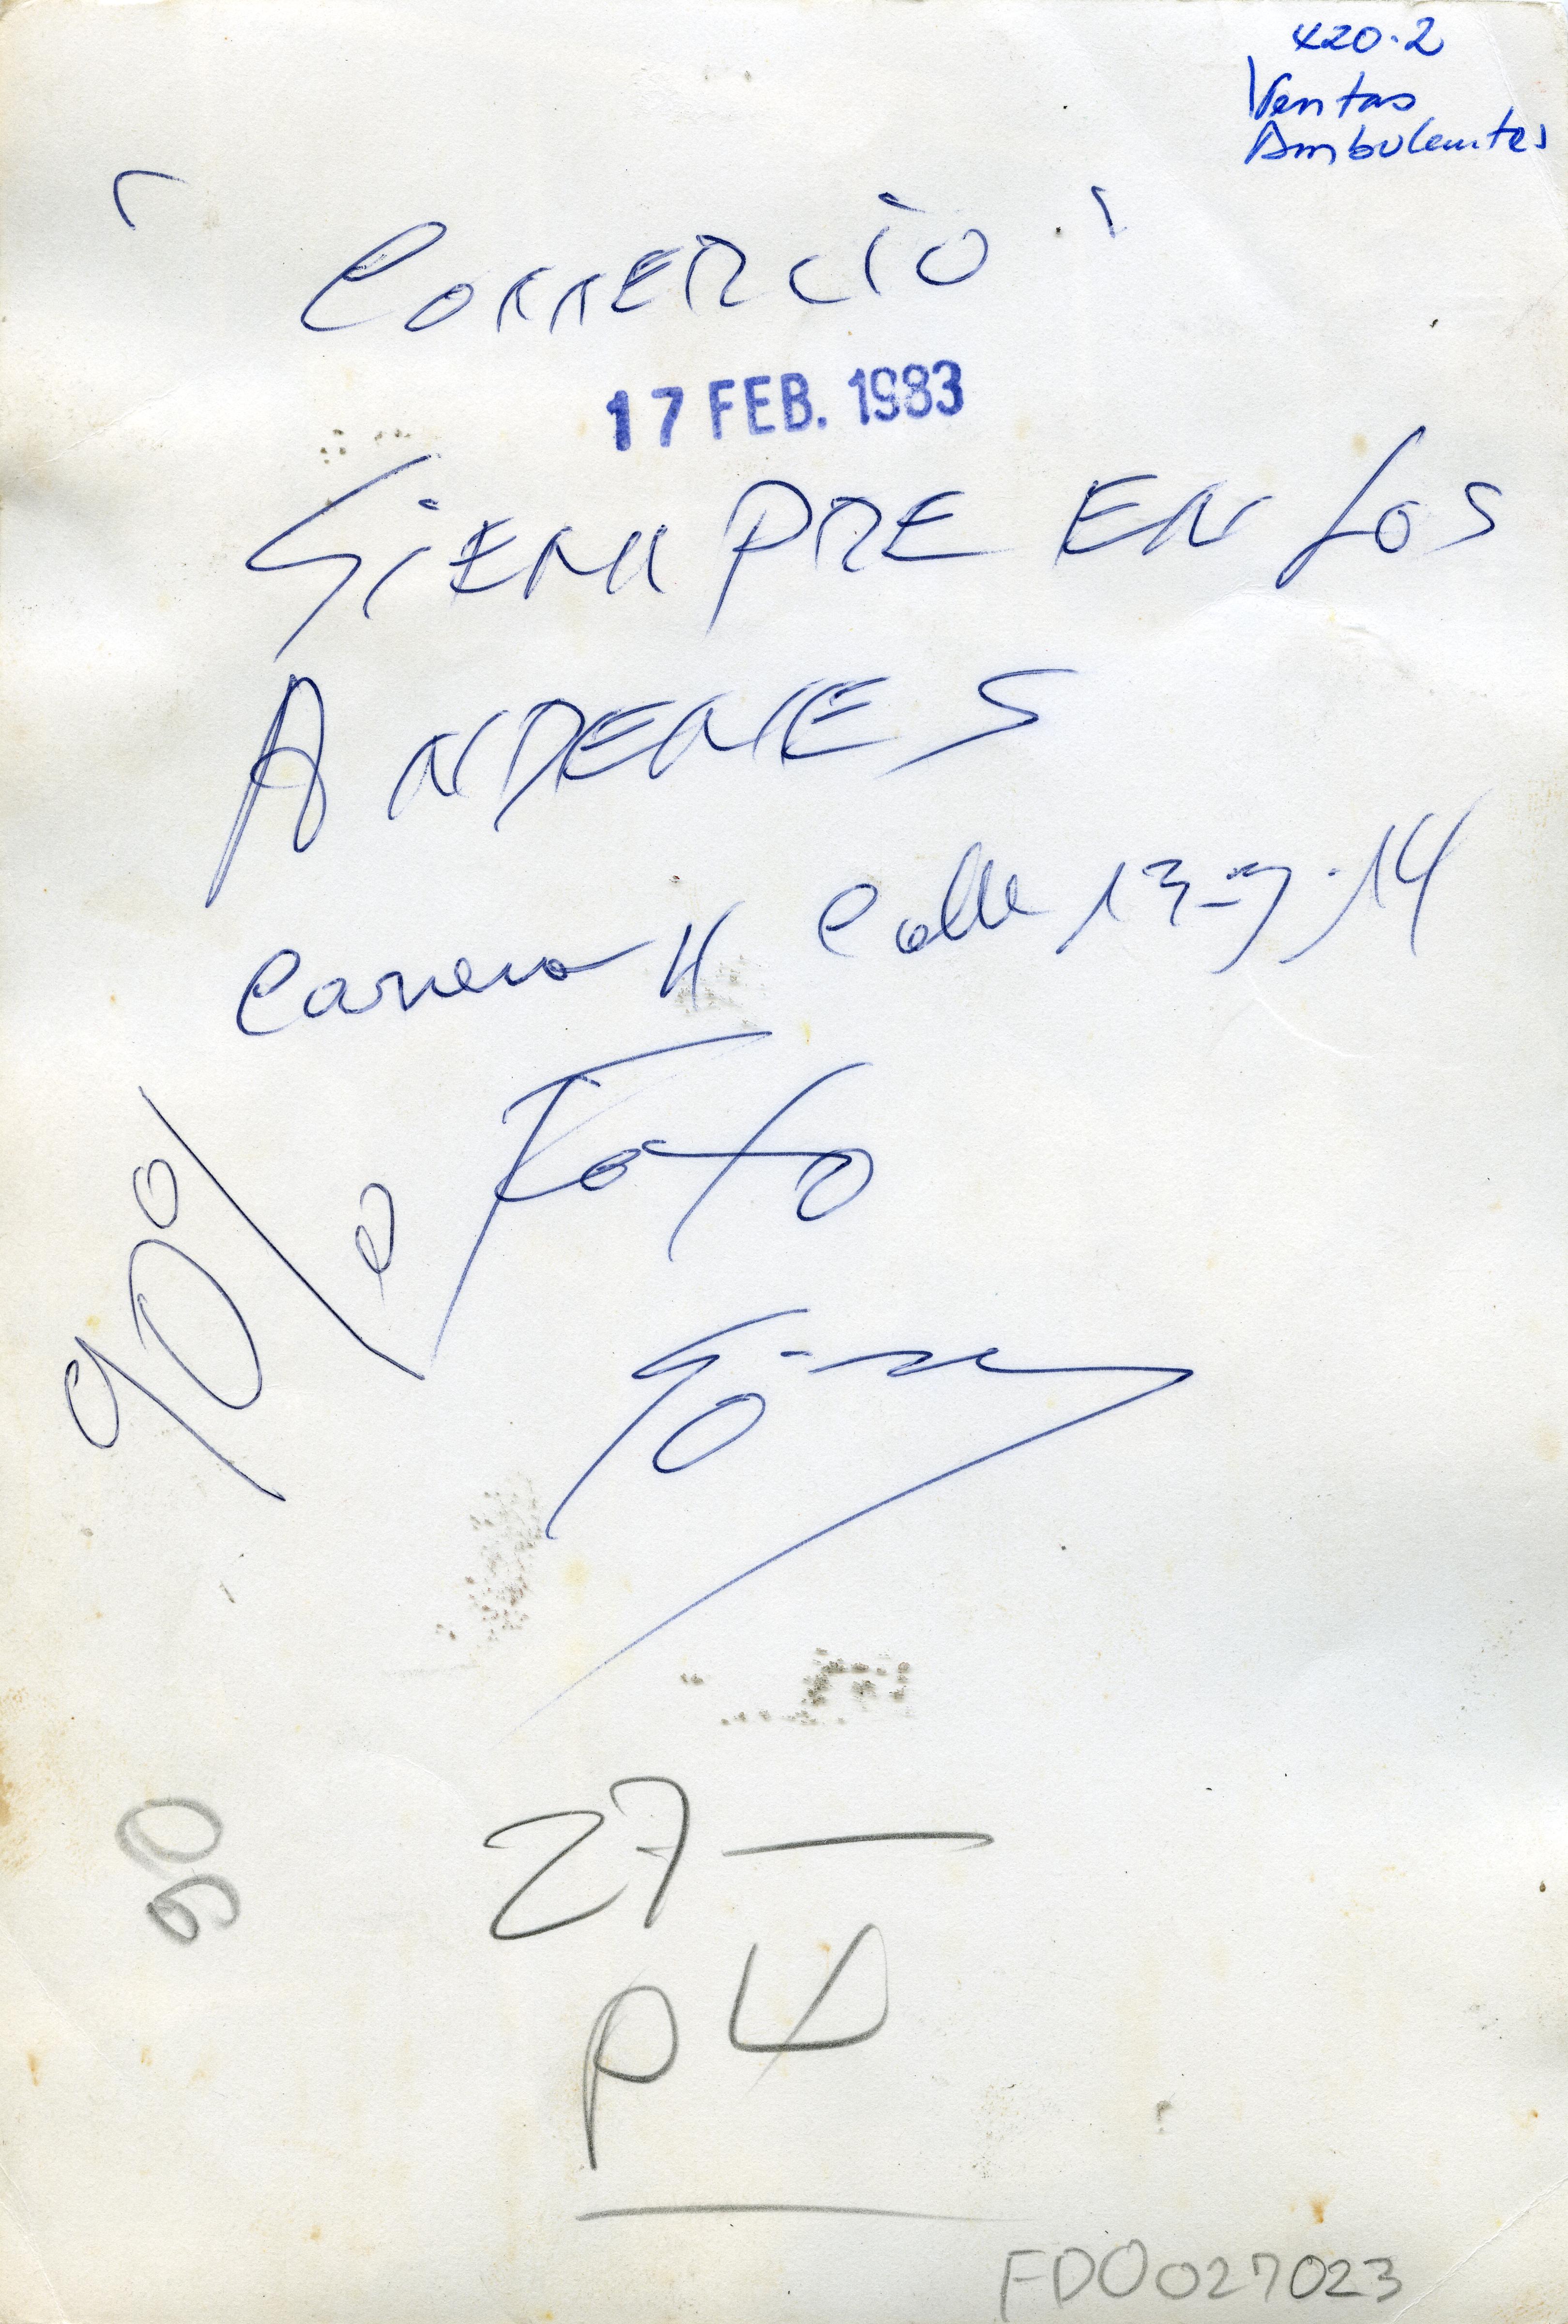 420-2
Ventas
Ambulantes
"COMERCIO"
17 FEB. 1983
SIEMPRE EN LOS
ANDENES
Carrera 11 Calle 13 y 14
Foto
90%
27 —
P
90
FD0027023